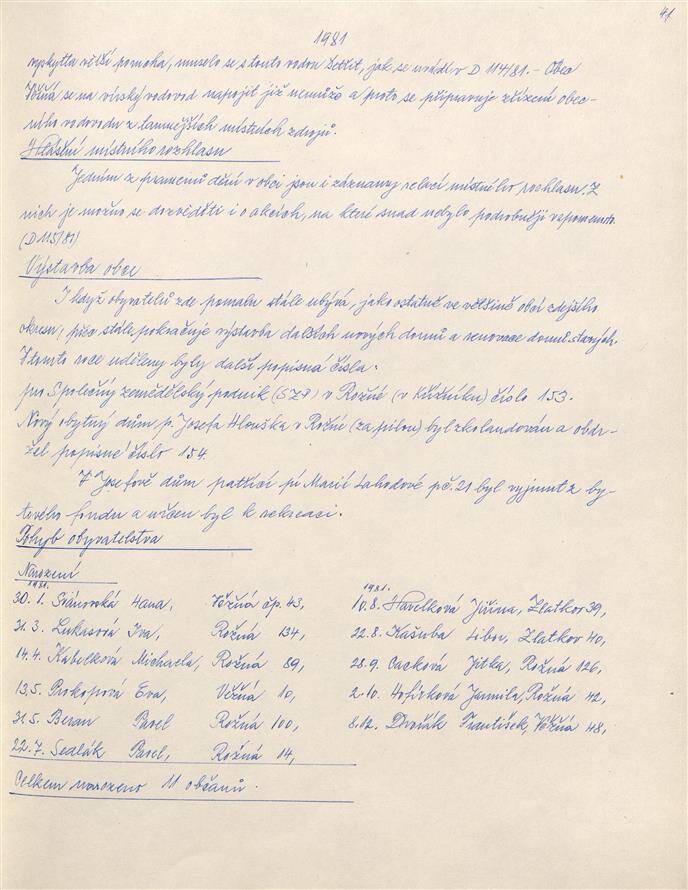 41
1981
vyskytla větší porucha, muselo se s touto vodou šetřit, jak se uvádí v D 114/81.- Obec
Věžná se na vírský vodovod napojit již nemůže a proto se připravuje zřízení obec-
ního vodovodu z tamnějších místních zdrojů.
Hlášení místního rozhlasu
Jedním z pramenů dění v obci jsou i záznamy relací místního rozhlasu. Z
nich je možno se dozvěděti i o akcích, na které snad nebylo podrobněji vzpomenuto.
(D 115/81)
Výstavba obce
I když obyvatelů zde pomalu stále ubývá, jako ostatně ve většině obcí zdejšího
okresu, přece stále pokračuje výstavba dalších nových domů a renovace domů starých.
V tomto roce uděleny byly další popisná čísla:
pro Společný zemědělský podnik (SZP) v Rožné (v Křižníku) číslo 153.
Nový obytný dům p. Josefa Hlouška v Rožné (za pilou) byl zkolaudován a obdr-
žel popisné číslo 154.
V Josefově dům patřící pí Marii Lahodové pč. 21 byl vyjmut z by-
tového fondu a určen byl k rekreaci.
Pohyb obyvatelstva
Narození
1981.
30. 1. Hana, Věžná čp. 43,
31. 3. Lukasová Iva, Rožná 134,
14. 4. Kabelková Michaela, Rožná 89,
13. 5. Prokopová Eva, Věžná 10,
31. 5. Beran Pavel Rožná 100,
22. 7. Sedlák Pavel, Rožná 14,
1981.
10. 8. Havelková Jiřina, Zlatkov 39,
22. 8. Kašuba Libor, Zlatkov 40,
28. 9. Cacková Jitka, Rožná 126,
2. 10. Hofírková Jarmila, Rožná 42,
8. 12. Dvořák František, Věžná 48,
Celkem narozeno 11 občanů.